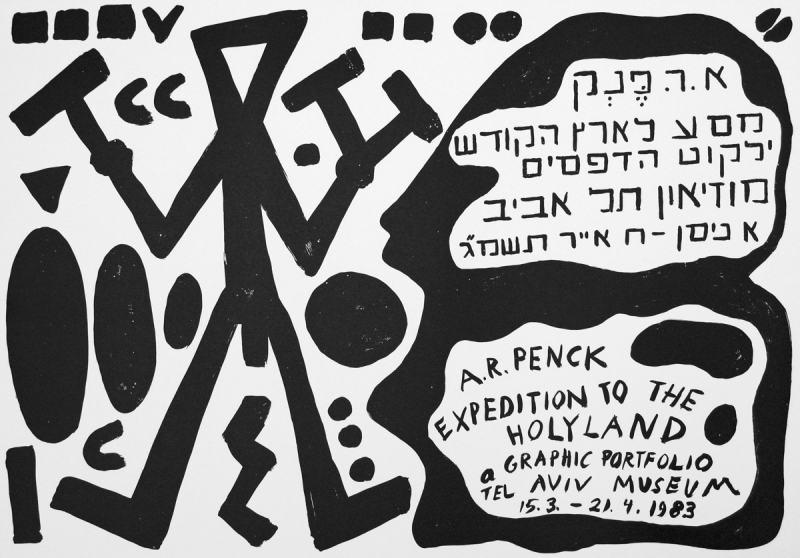 א.ר. פֶּנְק
מסע לארץ הקודש
ילקוט הדפסים
מוזיאון תל אביב
א ניסן - ח אייר תשמ״ג
A.R. PENCK
EXPEDITION TO THE
HOLYLAND
a GRAPHIC PORTFOLIO
TEL AVIV MUSEUM
15.3. - 21.4.1983